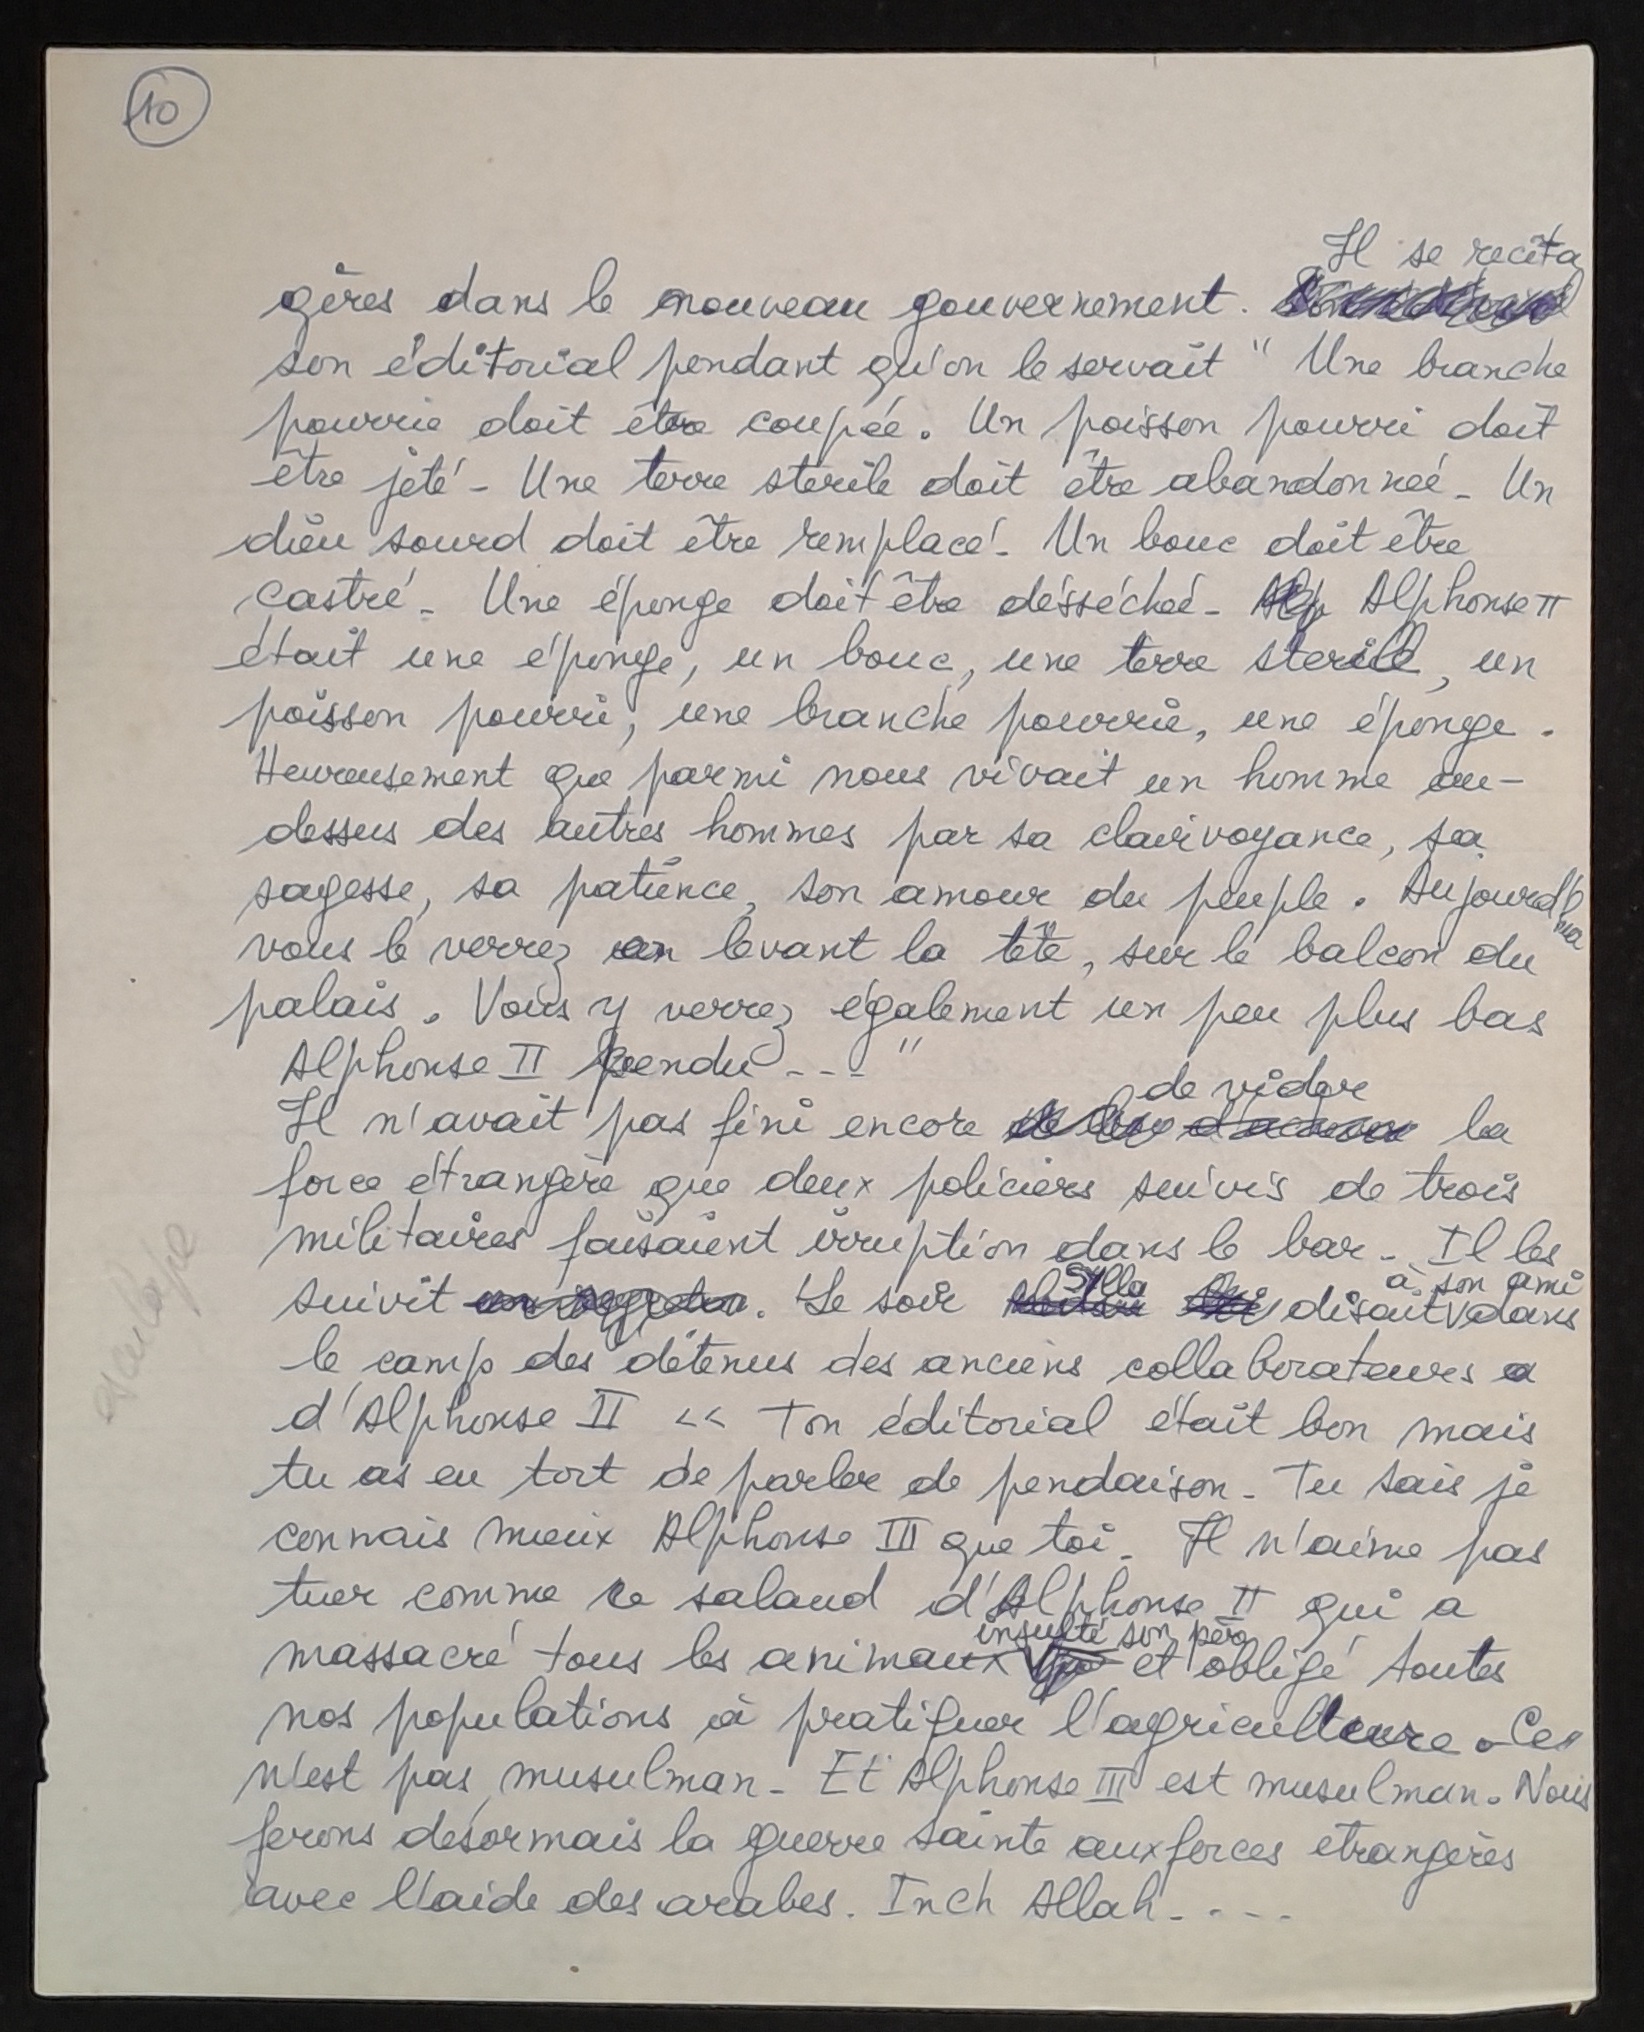 10
Il se recita
gères dans le nouveau gouvernement.
son éditorial pendant qu'on le servait " Une branche
pourrie doit être coupée. Un poisson pourri doit
être jeté - Une terre sterile doit être abandonneé - Un
dieu sourd doit être remplacé - Un bouc doit être
castré - Une éponge doit être désséchéé - Alp Alphonse II
était une éponge, un bouc, une terre sterile, un
poisson pourri, une branche pourrie, une éponge.
Heureusement que parmi nous vivait un homme au-
dessus des autres hommes par sa clairvoyance, sa
sagesse, sa patience, son amour du peuple. Aujourd'hui
vous le verrez en levant la tête, sur le balcon du
palais. Vous y verrez également un peu plus bas
Alphonse II pendu --- "
de vider
Il n'avait pas fini encore la
force étrangère que deux policiers suivis de trois
militaires faisaient irruption dans le bar - Il les
Sylla à son ami
suivit . Le soir disait dans
le camp des détenus des anciens collaborateurs
d'Alphonse II << Ton éditorial était bon mais
tu as eu tort de parler de pendaison - Tu sais je
connais mieux Alphonse III que toi - Il n'aime pas
tuer comme ce salaud d'Alphonse II qui a
insulté son père
massacré tous les animaux et obligé toutes
nos populations à pratiquer l'agriculture. Ce
n'est pas musulman - Et Alphonse III est musulman. Nous
ferons désormais la guerre sainte aux forces etrangères
avec l'aide des arabes. Inch Allah ----